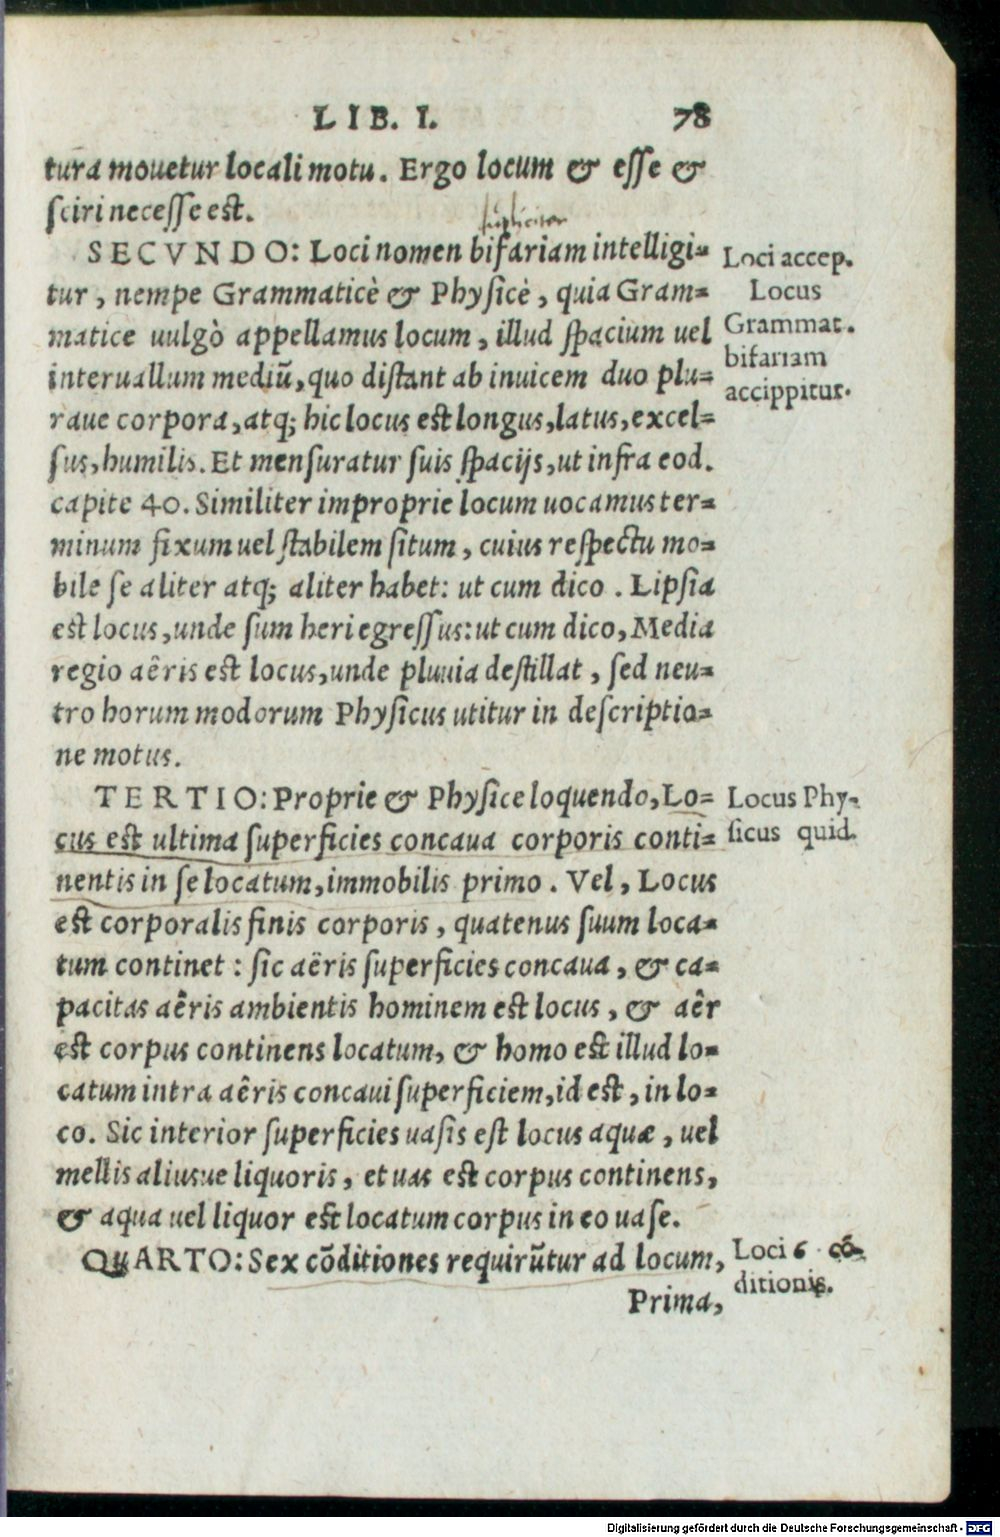 LIB. I. 78
tura mouetur locali motu. Ergo locum & esse &
sciri necesse est.
SECVNDO: Loci nomen bifariam intelligi-
tur, nempe Grammaticè & Physicè, quia Gram-
matice uulgò appellamus locum, illud spacium uel
interuallum mediũ, quo distant ab inuicem duo plu-
raue corpora, atq; hic locus est longus, latus, excel-
sus, humilis. Et mensuratur suis spacijs, ut infra eod.
capite 40. Similiter improprie locum uocamus ter-
minum fixum uel stabilem situm, cuius respectu mo-
bile se aliter atq; aliter habet: ut cum dico. Lipsia
est locus, unde sum heri egressus: ut cum dico, Media
regio aêris est locus, unde pluuia destillat, sed neu-
tro horum modorum Physicus utitur in descriptio-
ne motus.
TERTIO: Proprie & Physice loquendo, Lo-
cus est ultima superficies concaua corporis conti-
nentis in se locatum, immobilis primo. Vel, Locus
est corporalis finis corporis, quatenus suum loca-
tum continet: sic aëris superficies concaua, & ca-
pacitas aêris ambientis hominem est locus, & aêr
est corpus continens locatum, & homo est illud lo-
catum intra aêris concaui superficiem, id est, in lo-
co. Sic interior superficies uasis est locus aquæ, uel
mellis aliusue liquoris, et uas est corpus continens,
& aqua uel liquor est locatum corpus in eo uase.
QVARTO: Sex cōditiones requirũtur ad locum,
Prima,
Loci accep.
Locus
Grammat.
bifariam
accippitur.
Locus Phy-
sicus quid.
Loci 6 cō-
ditionis.
Digitalisierung gefördert durch die Deutsche Forschungsgemeinschaft - DFG